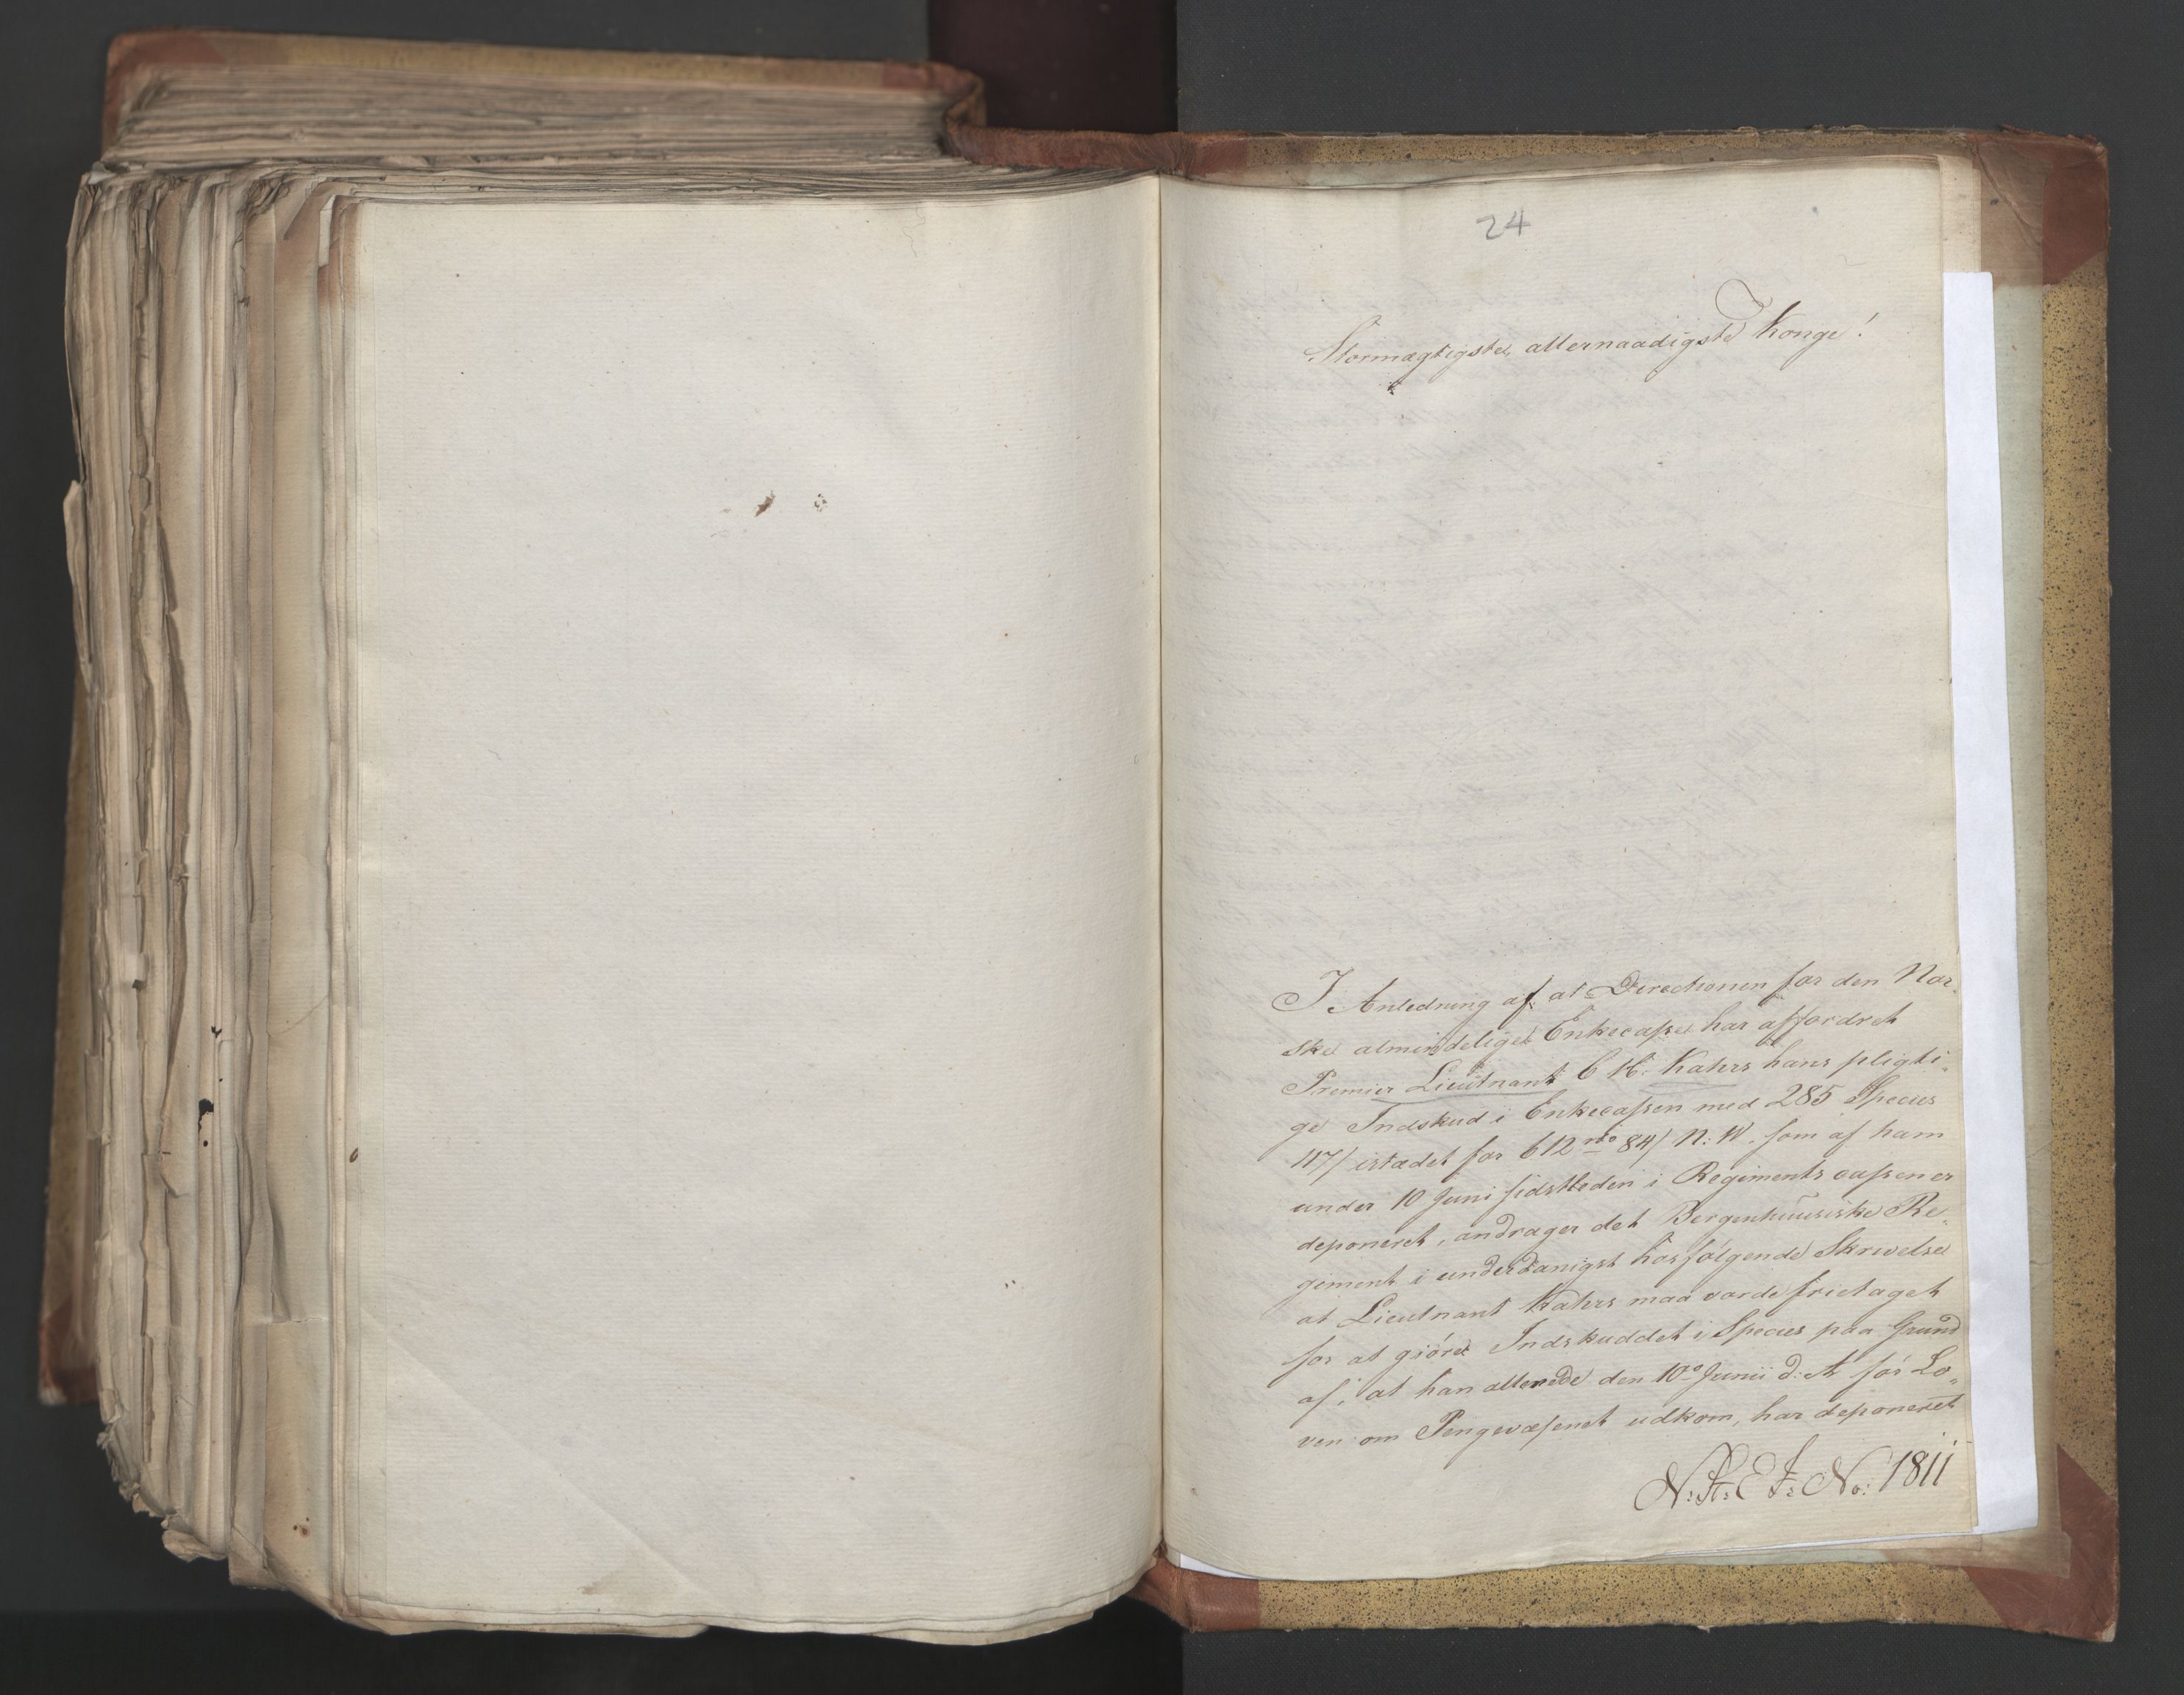 24
Stormægtigste, allernaadigste Konge!
I Anledning af, at Directionen for den Nor-
ske almindelige Enkecasse har affordret
Premier Lieutnant C H: Kahrs hans pligti-
ge Indskud i Enkecassen med 285 Species
117/ istædet for 612 84/ N: W. som af ham
under 10 Juni sidstleden i Regimentscassen er
deponeret, andrager det Bergenhuusiske Re-
giment i underdanigst hosfølgende Skrivelse
at Lieutnant Kahrs maa vorde frietaget
for at giöre Indskuddet i Species paa Grund
af, at han allerede den 10de Junii d: A för Lo-
ven om Pengevæsenet udkom, har deponeret
No: 1811